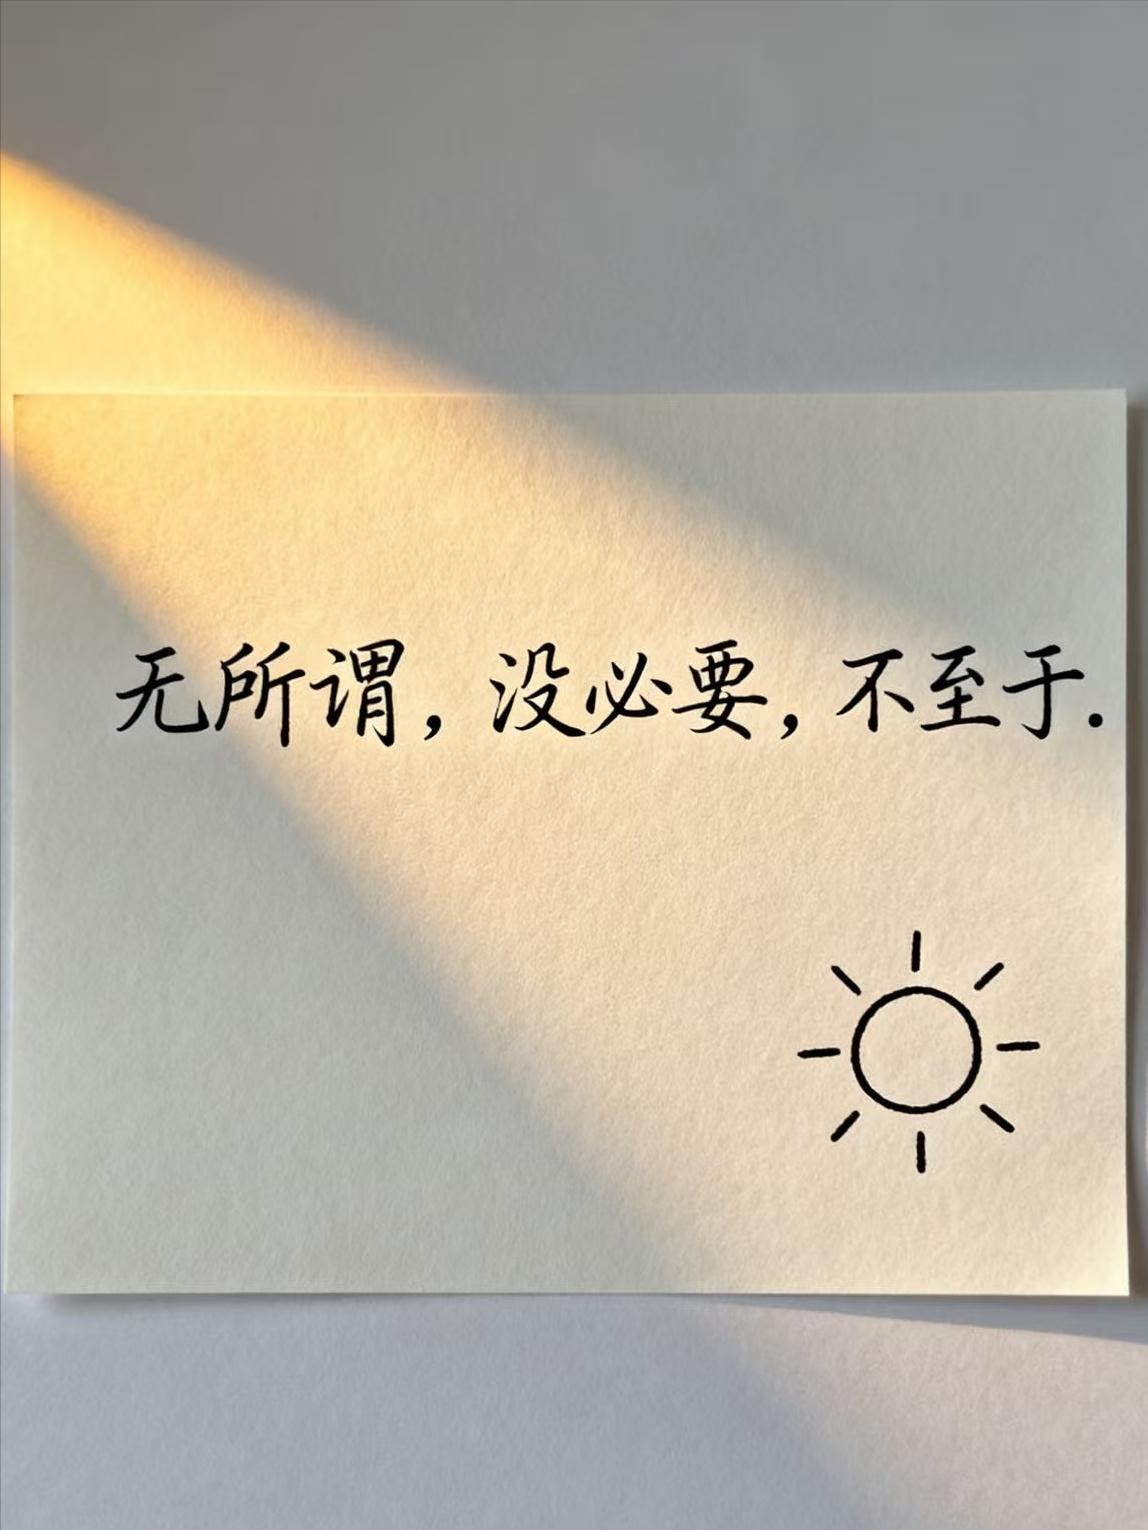 无所谓，没必要，不至于.